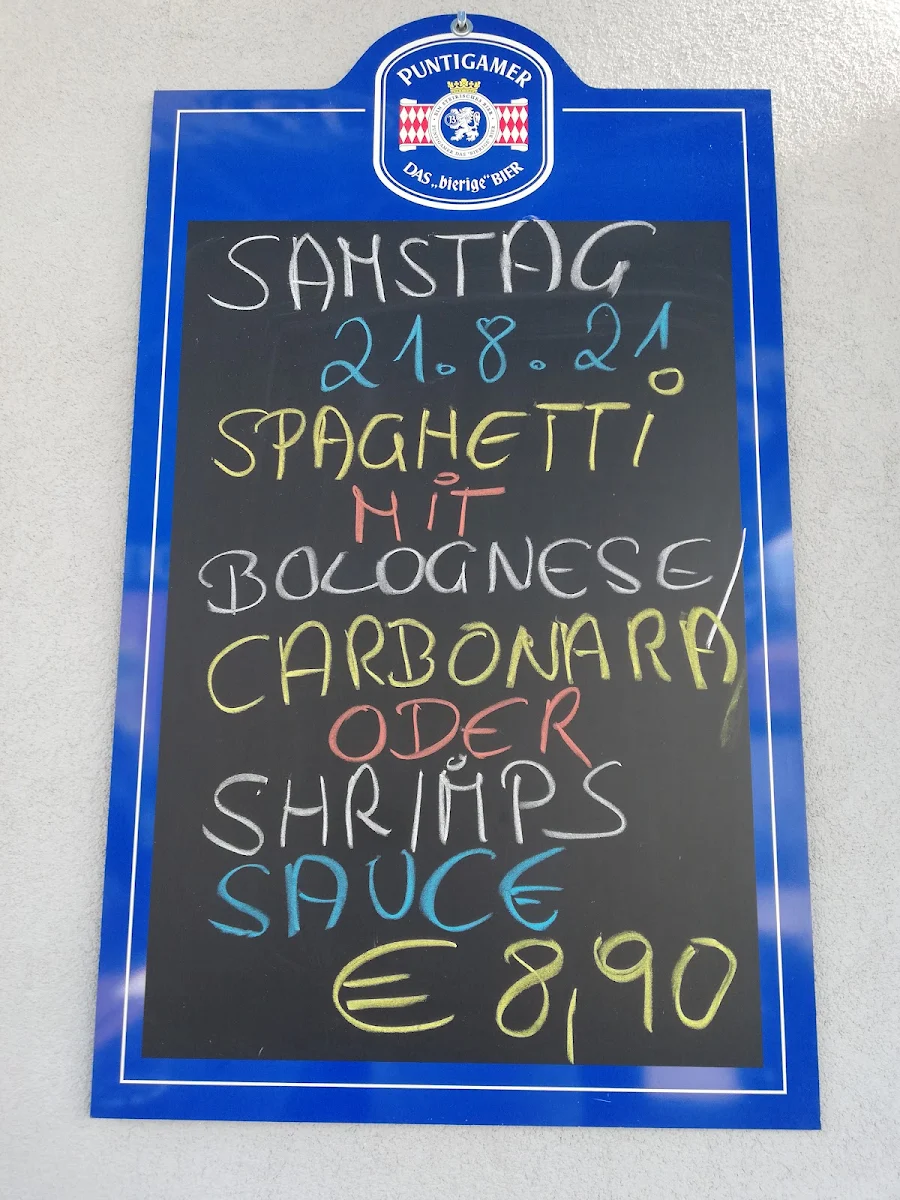 PUNTIGAMER
DAS „bierige“ BIER
SAMSTAG
21.8.21
SPAGHETTI
MIT
BOLOGNESE/
CARBONARA/
ODER
SHRIMPS
SAUCE
€ 8,90